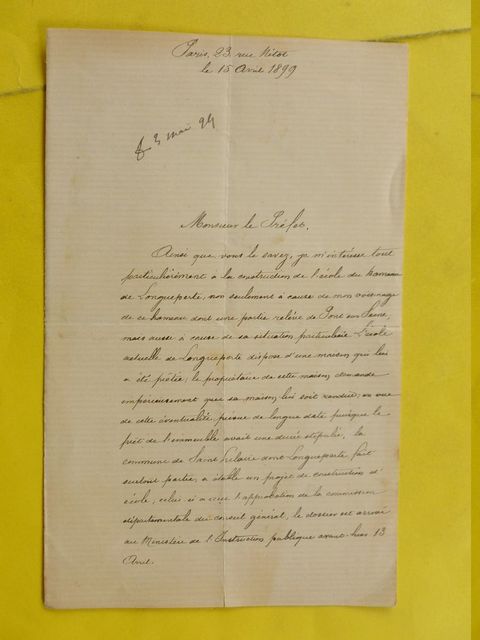 Paris, 23, rue Nitot
le 15 Avril 1899
3 mai 99
Monsieur le Préfet,
Ainsi que vous le savez, je m'intéresse tout
particulièrement à la construction de l'école du hameau
de Longueperte, non seulement à cause de mon voisinage
de ce hameau dont une partie relève de Pont sur Seine,
mais aussi à cause de sa situation particulière. L'école
actuelle de Longueperte dispose d'une maison qui lui
a été prêtée; le propriétaire de cette maison demande
impérieusement que sa maison lui soit rendue; en vue
de cette éventualité prévue de longue date puisque le
prêt de l'immeuble avait une durée stipulée, la
commune de Saint Hilaire dont Longueperte fait
surtout partie, a établi un projet de construction d'
école, celui-ci a reçu l'approbation de la commission
départementale du conseil général, le dossier est arrivé
au Ministère de l'Instruction publique avant-hier 13
Avril.